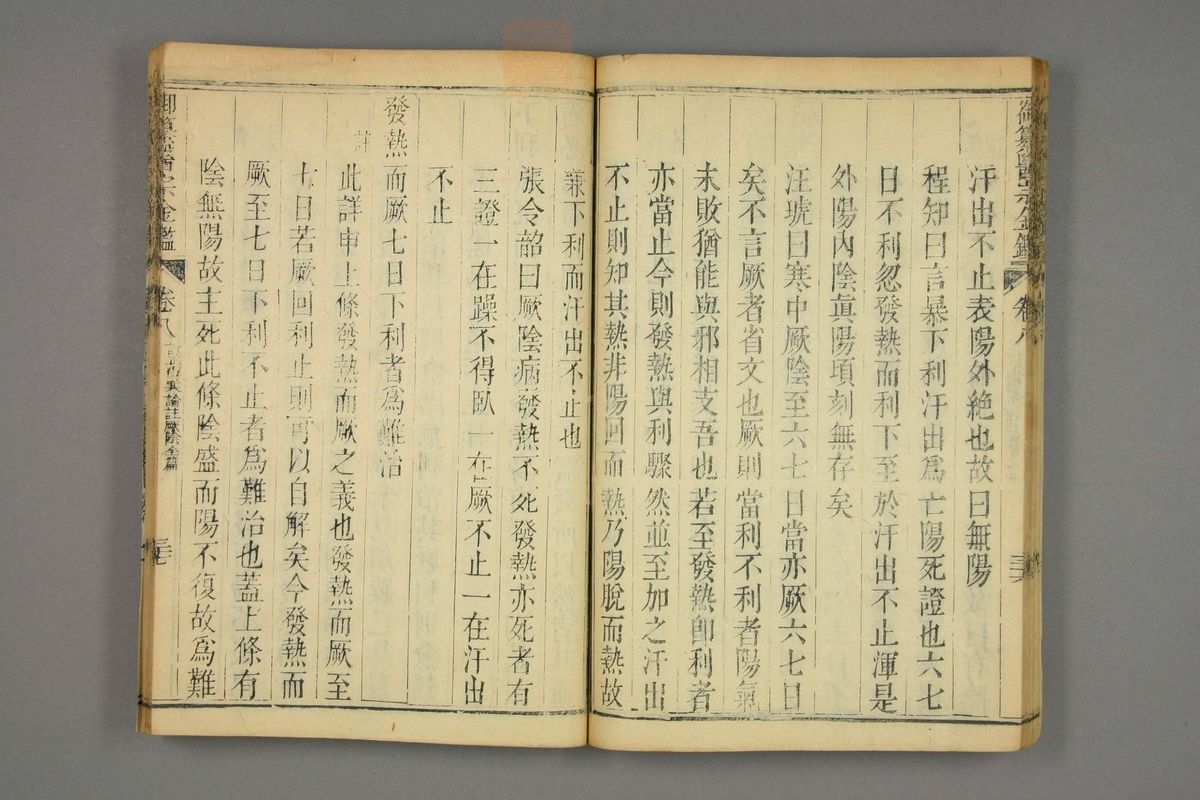 御纂醫宗金鑑 卷八
汗出不止表陽外絕也故曰無陽
程知曰言暴下利汗出爲亡陽死證也六七
日不利忽發熱而利下至於汗出不止渾是
外陽內陰眞陽頃刻無存矣
汪琥曰寒中厥陰至六七日當亦厥六七日
矣不言厥者省文也厥則當利不利者陽氣
未敗猶能與邪相支吾也若至發熱卽利者
亦當止今則發熱與利驟然並至加之汗出
不止則知其熱非陽回而熱乃陽脫而熱故
兼下利而汗出不止也
張令韶曰厥陰病發熱不死發熱亦死者有
三證一在躁不得臥一在厥不止一在汗出
不止
發熱而厥七日下利者爲難治
註
此詳申上條發熱而厥之義也發熱而厥至
七日若厥回利止則可以自解矣今發熱而
厥至七日下利不止者爲難治也蓋上條有
陰無陽故主死此條陰盛而陽不復故爲難
御纂醫宗金鑑 卷八 厥陰全篇 三七